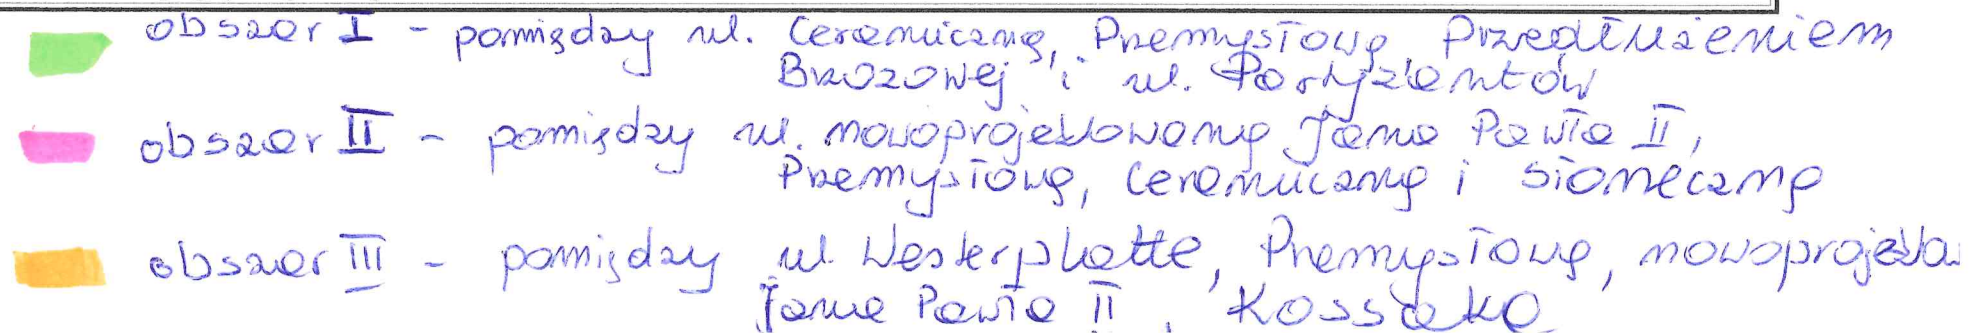 obszar I - pomiędzy ul. Ceramiczną, Przemysłową, Przedłużeniem
Brzozowej i ul. Partyzantów
obszar II - pomiędzy ul. nowoprojektowaną Jana Pawła II,
Przemysłową, Ceramiczną i Słoneczną
obszar III - pomiędzy ul Westerplatte, Przemysłową, nowoprojektow
Jana Pawła II, Kossaka